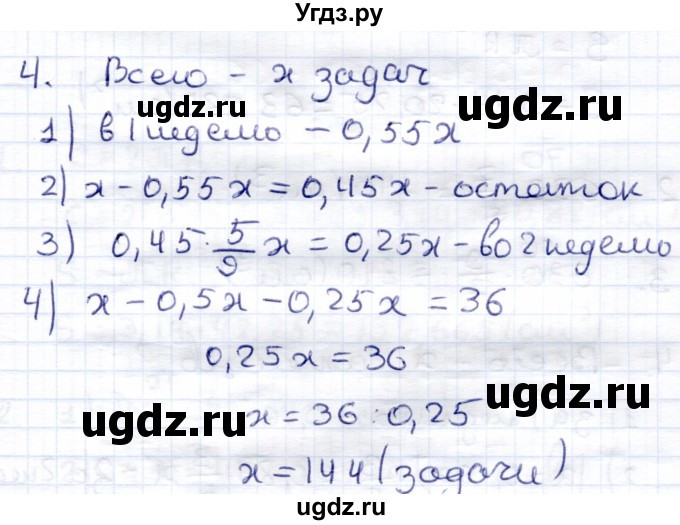 Угдз.ру
4. Всего – x задач
ugdz.ru
ugdz.ru
1) в 1 неделю – 0,55x
2) x – 0,55x = 0,45x – остаток
3) 0,45 · 5/9 x = 0,25x – во 2 неделю
4) x – 0,5x – 0,25x = 36
0,25x = 36
ugdz.ru
ugdz.ru
x = 36 : 0,25
x = 144 (задачи)
ugdz.ru